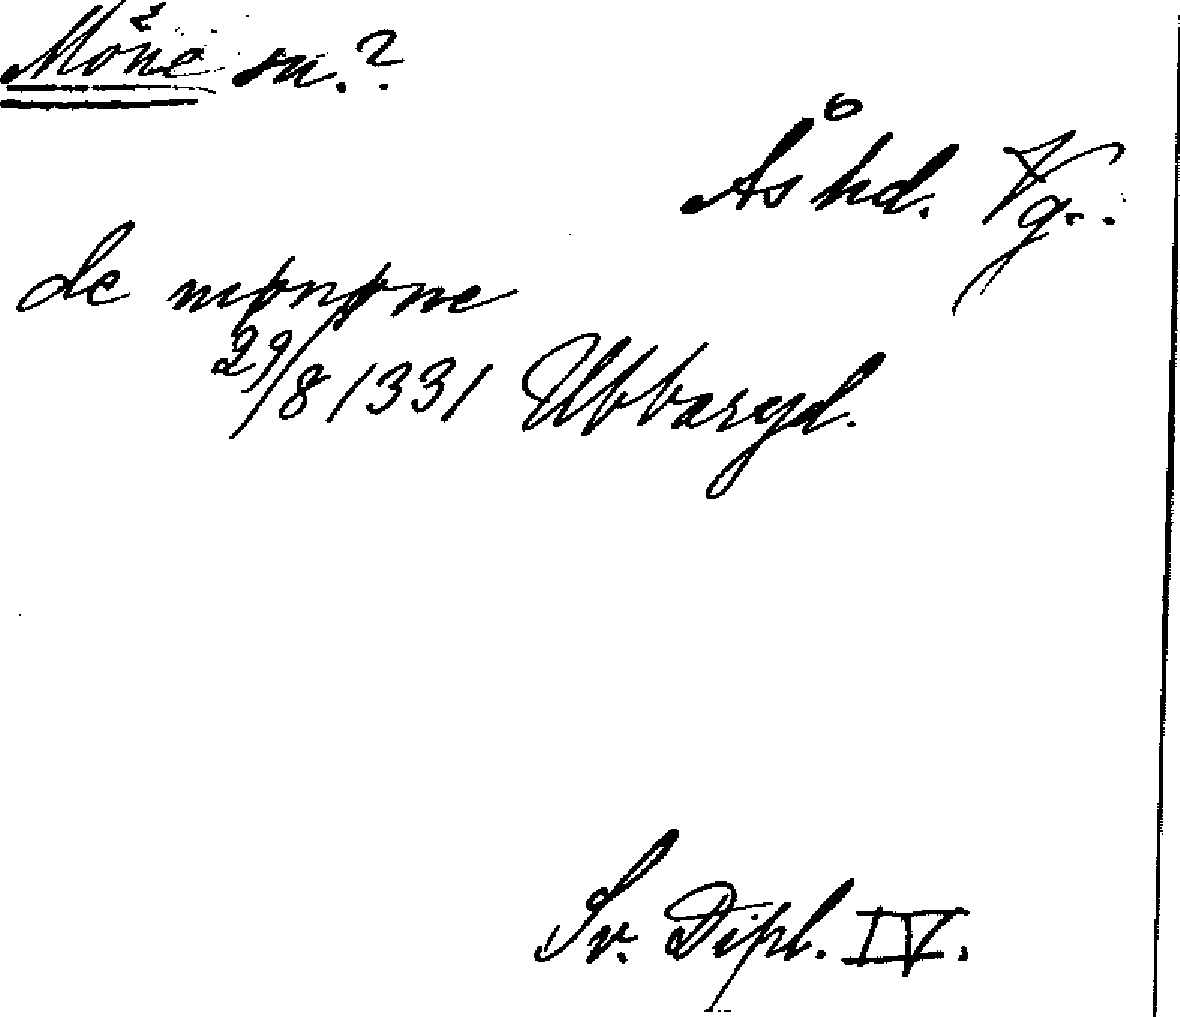 Möne sn.?
Ås hd. Vg.
de mønøne
29/8 1331 Ubbaryd.
Sv. Dipl. IV.